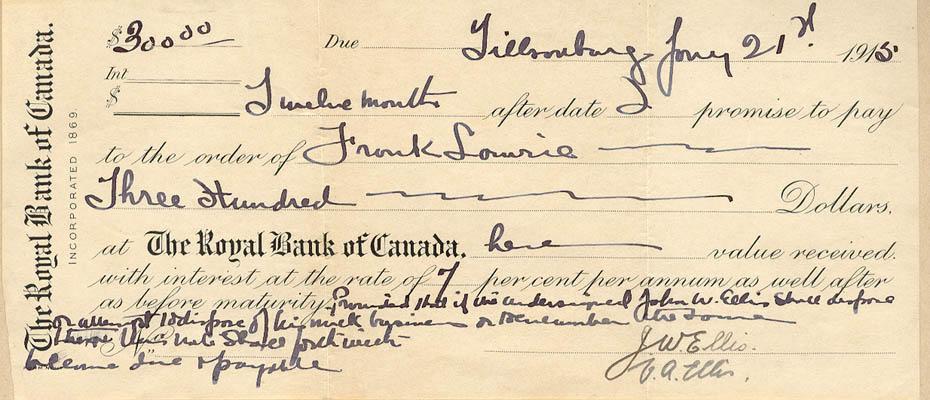 The Royal Bank of Canada.
INCORPORATED 1869.
$300 00 Due Tillsonburg Jany 21st 1915
Int
$ Twelve months after date I promise to pay
to the order of Frank Lowrie
Three Hundred Dollars.
at The Royal Bank of Canada, here value received.
with interest at the rate of 7 per cent per annum as well after
as before maturity. Provided that if the undersigned John W. Ellis shall dispose
or attempt to dispose of his milk business or encumber the same
then this note shall forthwith
become due & payable
J.W. Ellis.
A. Ellis.